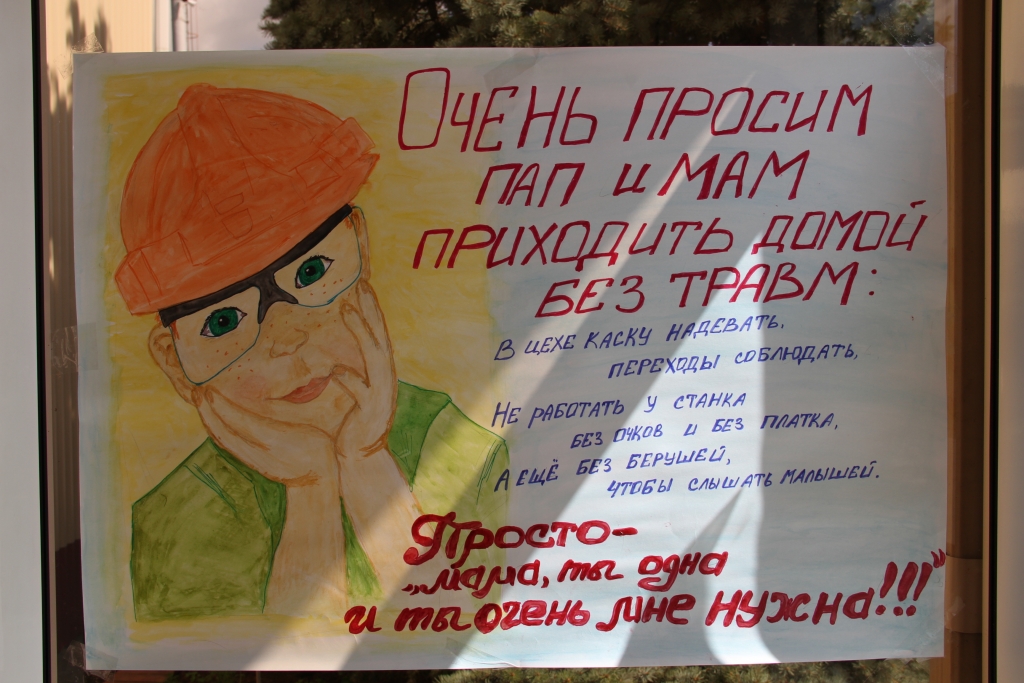 Очень просим
пап и мам
приходить домой
без травм:
В цехе каску надевать,
переходы соблюдать,
Не работать у станка
без очков и без платка,
А ещё без берушей,
чтобы слышать малышей.
Просто-
„мама, ты одна
и ты очень мне нужна!!!”